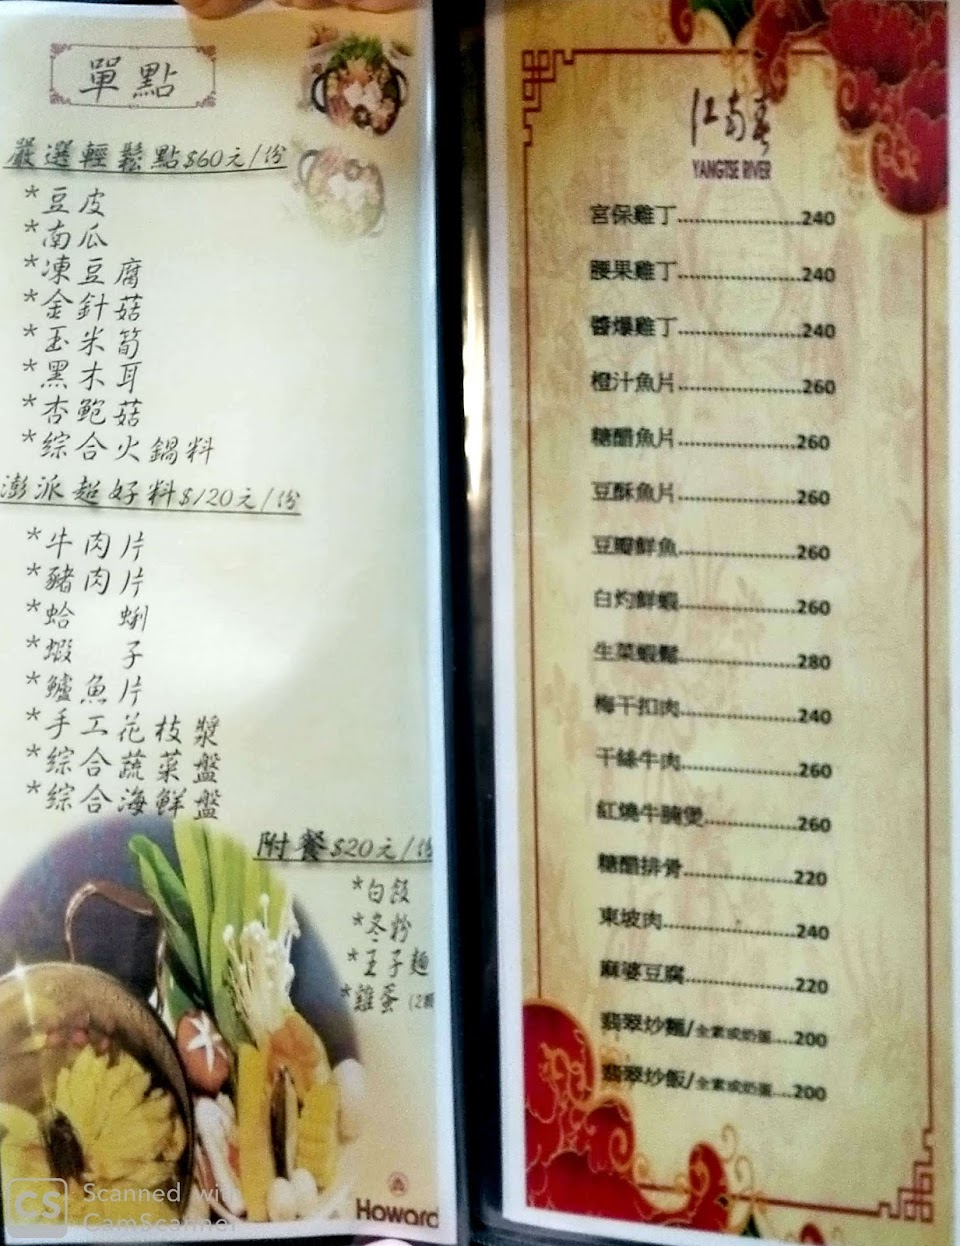 單點
嚴選輕鬆點$60元/份
*豆皮
*南瓜
*凍豆腐
*金針菇
*玉米筍
*黑木耳
*杏鮑菇
*綜合火鍋料
澎派超好料$120元/份
*牛肉片
*豬肉片
*蛤 蜊
*蝦 子
*鱸魚片
*手工花枝漿
*綜合蔬菜盤
*綜合海鮮盤
附餐$20元/份
*白飯
*冬粉
*王子麵
*雞蛋(2顆
Howard
CS Scanned with
CamScanner
江南春
YANGTSE RIVER
宮保雞丁....................240
腰果雞丁....................240
醬爆雞丁....................240
橙汁魚片....................260
糖醋魚片....................260
豆酥魚片....................260
豆瓣鮮魚....................260
白灼鮮蝦....................260
生菜蝦鬆....................280
梅干扣肉....................240
干絲牛肉....................260
紅燒牛腩煲................260
糖醋排骨....................220
東坡肉........................240
麻婆豆腐....................220
翡翠炒麵/全素或奶蛋....200
翡翠炒飯/全素或奶蛋....200